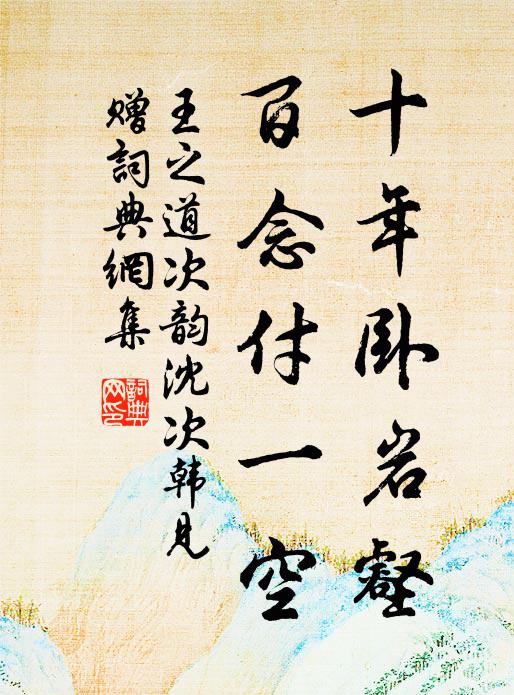 十年卧岩壑
百念付一空
王之道次韵沈次韩见
赠詞典網集
詞典
网印